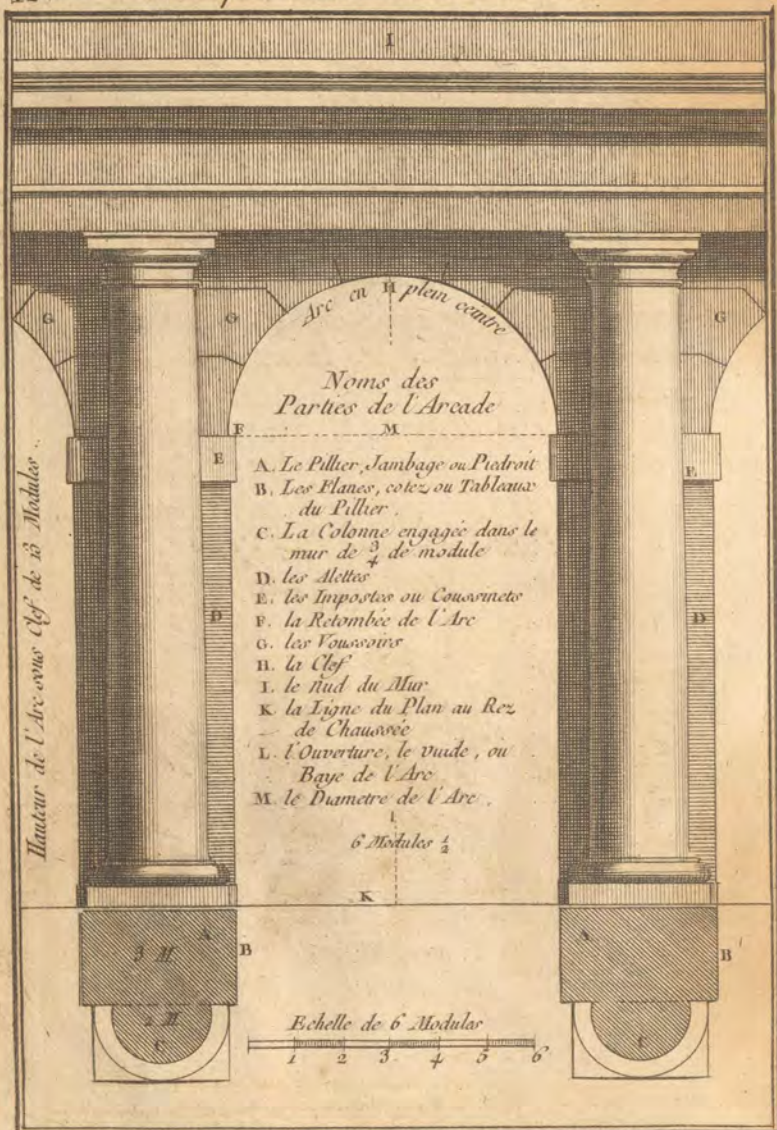 I
G
G
Arc en H plein ceintre
G
Noms des
Parties de l'Arcade
F
M
E
E
A. Le Pillier, Jambage ou Piedroit
B. Les Flancs, cotez ou Tableaux
du Pillier.
C. La Colonne engagée dans le
mur de 3/4 de module
D. les Alettes
E. les Impostes ou Coussinets
F. la Retombée de l'Arc
G. les Voussoirs
H. la Clef
I. le nud du Mur
K. la Ligne du Plan au Rez
de Chaussée
L. l'Ouverture, le vuide, ou
Baye de l'Arc
M. le Diametre de l'Arc.
D
D
Hauteur de l'Arc sous Clef de 13 Modules.
6 Modules 1/2
K
3 M
A
B
A
B
2 M
C
C
Echelle de 6 Modules
1 2 3 4 5 6